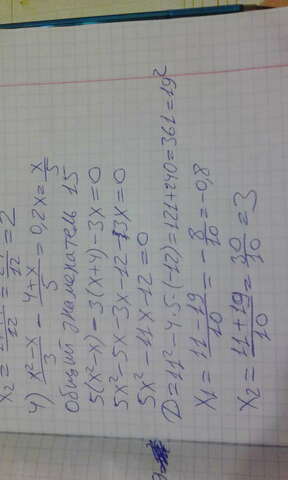 x₂ = 12 = 12 = 2
4) (x²-x)/3 - (4+x)/5 = 0,2x = x/5
Общий знаменатель 15
5(x²-x) - 3(x+4) - 3x = 0
5x² - 5x - 3x - 12 - 3x = 0
5x² - 11x - 12 = 0
D = 11² - 4·5·(-12) = 121 + 240 = 361 = 19²
x₁ = (11-19)/10 = -8/10 = -0,8
x₂ = (11+19)/10 = 30/10 = 3